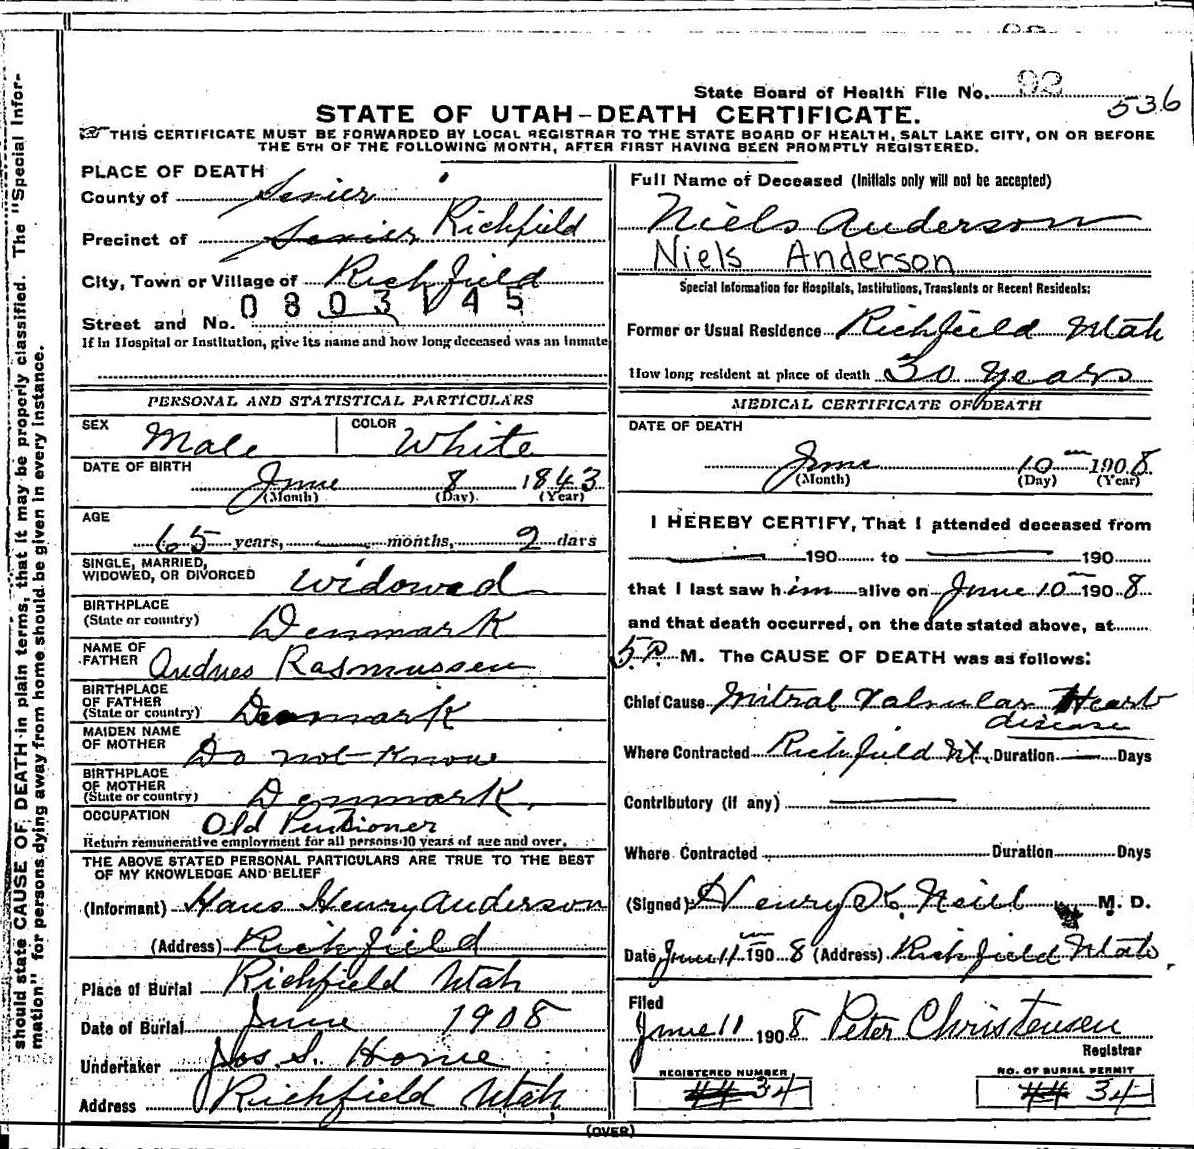 State Board of Health File No. 92
536
STATE OF UTAH-DEATH CERTIFICATE.
THIS CERTIFICATE MUST BE FORWARDED BY LOCAL REGISTRAR TO THE STATE BOARD OF HEALTH, SALT LAKE CITY, ON OR BEFORE
THE 5TH OF THE FOLLOWING MONTH, AFTER FIRST HAVING BEEN PROMPTLY REGISTERED.
should state CAUSE OF DEATH in plain terms, that it may be properly classified. The "Special Infor-
mation" for persons dying away from home should be given in every instance.
PLACE OF DEATH
County of Sevier
Precinct of Sevier Richfield
City, Town or Village of Richfield
0803145
Street and No.
If in Hospital or Institution, give its name and how long deceased was an inmate
PERSONAL AND STATISTICAL PARTICULARS
SEX Male COLOR White
DATE OF BIRTH
June 8 1843
(Month) (Day) (Year)
AGE
65 years, months, 2 days
SINGLE, MARRIED,
WIDOWED, OR DIVORCED Widowed
BIRTHPLACE
(State or country) Denmark
NAME OF
FATHER Andres Rasmussen
BIRTHPLACE
OF FATHER
(State or country) Denmark
MAIDEN NAME
OF MOTHER Do not Know
BIRTHPLACE
OF MOTHER
(State or country) Denmark.
OCCUPATION Old Pentioner
Return remunerative employment for all persons 10 years of age and over.
THE ABOVE STATED PERSONAL PARTICULARS ARE TRUE TO THE BEST
OF MY KNOWLEDGE AND BELIEF
(Informant) Hans Henry Anderson
(Address) Richfield
Place of Burial Richfield Utah
Date of Burial June 1908
Undertaker Jos. S. Horne
Address Richfield Utah
Full Name of Deceased (Initials only will not be accepted)
Niels Anderson
Niels Anderson
Special Information for Hospitals, Institutions, Transients or Recent Residents:
Former or Usual Residence Richfield Utah
How long resident at place of death 30 Years
MEDICAL CERTIFICATE OF DEATH
DATE OF DEATH
June 10 1908
(Month) (Day) (Year)
I HEREBY CERTIFY, That I attended deceased from
190 to 190
that I last saw him alive on June 10 1908
and that death occurred, on the date stated above, at
5 P. M. The CAUSE OF DEATH was as follows:
Chief Cause Mitral Valvular Heart
disease
Where Contracted Richfield Ut. Duration Days
Contributory (if any)
Where Contracted Duration Days
(Signed) Henry K. Neill M. D.
Date June 11 1908 (Address) Richfield Utah.
Filed
June 11 1908 Peter Christensen
Registrar
REGISTERED NUMBER NO. OF BURIAL PERMIT
34 34
(OVER)